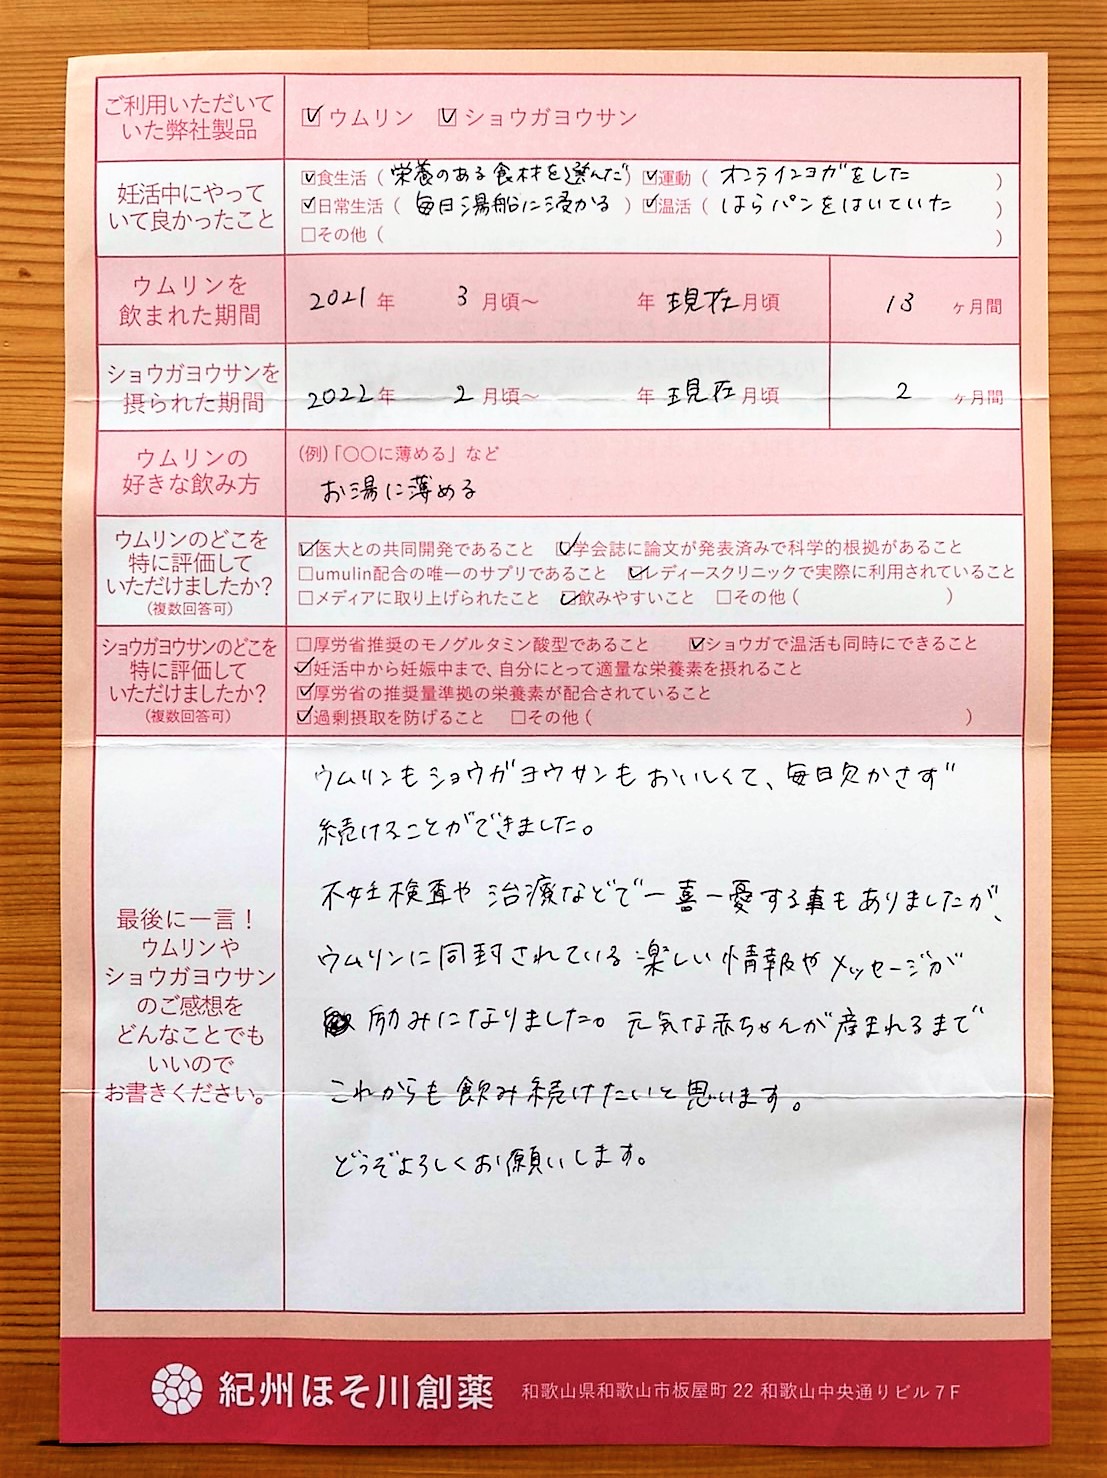 ご利用いただいて
いた弊社製品
☑ウムリン ☑ショウガヨウサン
妊活中にやって
いて良かったこと
☑食生活(栄養のある食材を選んだ) ☑運動(オンラインヨガをした)
☑日常生活(毎日湯船に浸かる) ☑温活(はらパンをはいていた)
□その他( )
ウムリンを
飲まれた期間
2021年 3月頃〜 年 現在月頃 13ヶ月間
ショウガヨウサンを
摂られた期間
2022年 2月頃〜 年 現在月頃 2ヶ月間
ウムリンの
好きな飲み方
(例)「○○に薄める」など
お湯に薄める
ウムリンのどこを
特に評価して
いただけましたか?
(複数回答可)
☑医大との共同開発であること ☑学会誌に論文が発表済みで科学的根拠があること
□umulin配合の唯一のサプリであること ☑レディースクリニックで実際に利用されていること
□メディアに取り上げられたこと ☑飲みやすいこと □その他( )
ショウガヨウサンのどこを
特に評価して
いただけましたか?
(複数回答可)
□厚労省推奨のモノグルタミン酸型であること ☑ショウガで温活も同時にできること
☑妊活中から妊娠中まで、自分にとって適量な栄養素を摂れること
☑厚労省の推奨量準拠の栄養素が配合されていること
☑過剰摂取を防げること □その他( )
最後に一言!
ウムリンや
ショウガヨウサン
のご感想を
どんなことでも
いいので
お書きください。
ウムリンもショウガヨウサンもおいしくて、毎日欠かさず
続けることができました。
不妊検査や治療などで一喜一憂する事もありましたが、
ウムリンに同封されている楽しい情報やメッセージが
励みになりました。元気な赤ちゃんが産まれるまで
これからも飲み続けたいと思います。
どうぞよろしくお願いします。
紀州ほそ川創薬 和歌山県和歌山市板屋町22 和歌山中央通りビル7F